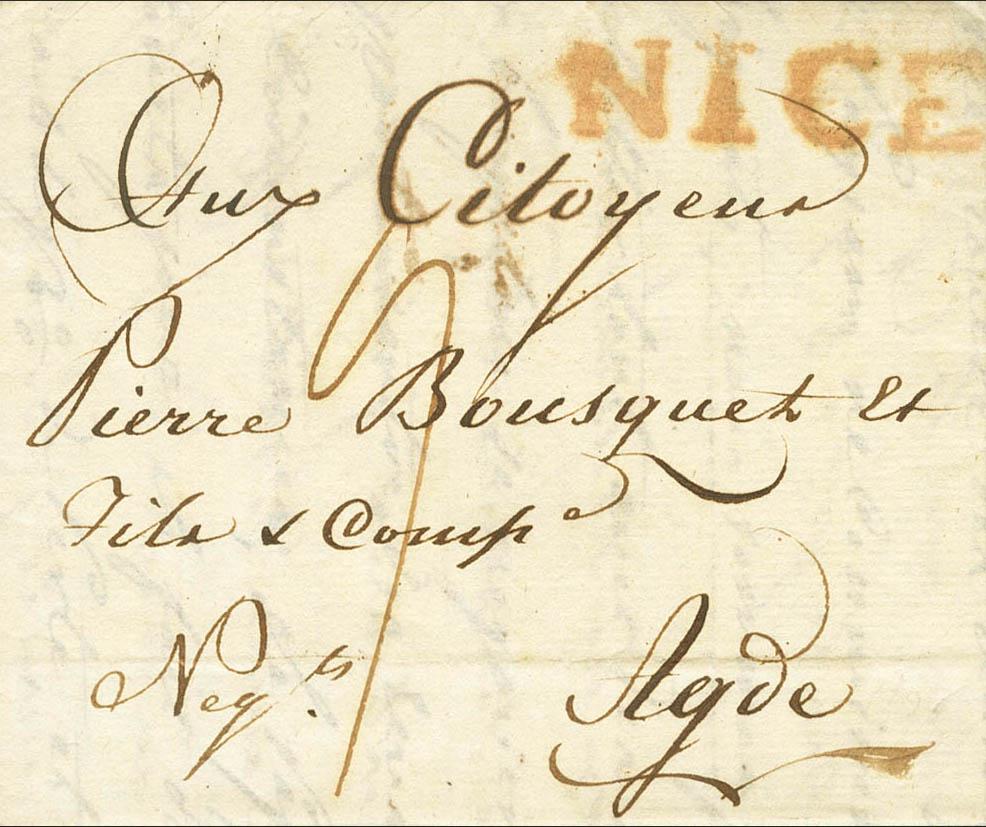 NICE
Aux Citoyens
Pierre Bousquet Et
Fils & Compe
Negts.
Agde